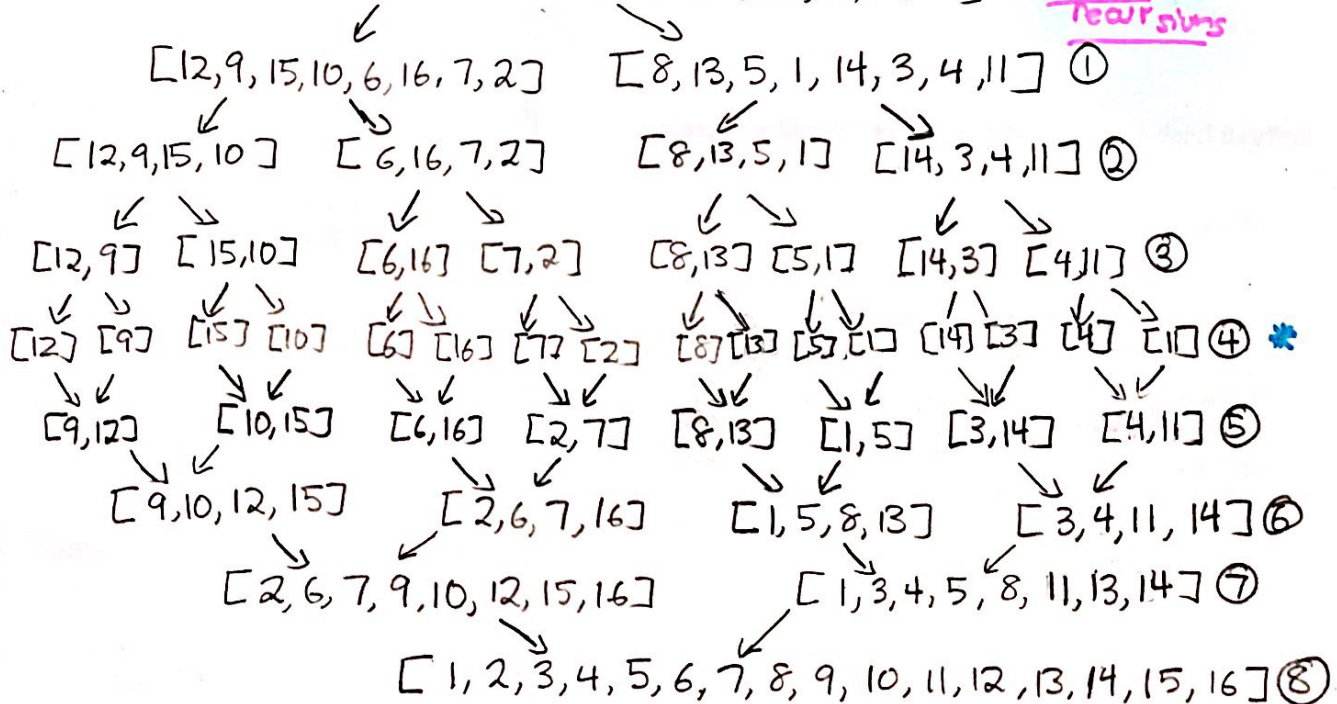 recursions
[12,9,15,10,6,16,7,2] [8,13,5,1,14,3,4,11] ①
[12,9,15,10] [6,16,7,2] [8,13,5,1] [14,3,4,11] ②
[12,9] [15,10] [6,16] [7,2] [8,13] [5,1] [14,3] [4,11] ③
[12] [9] [15] [10] [6] [16] [7] [2] [8] [13] [5] [1] [14] [3] [4] [11] ④ *
[9,12] [10,15] [6,16] [2,7] [8,13] [1,5] [3,14] [4,11] ⑤
[9,10,12,15] [2,6,7,16] [1,5,8,13] [3,4,11,14] ⑥
[2,6,7,9,10,12,15,16] [1,3,4,5,8,11,13,14] ⑦
[1,2,3,4,5,6,7,8,9,10,11,12,13,14,15,16] ⑧